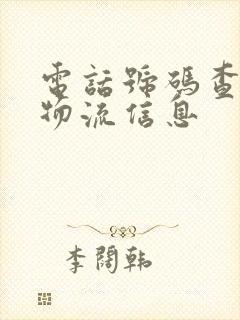 電話號碼查
物流信息
李闊韩